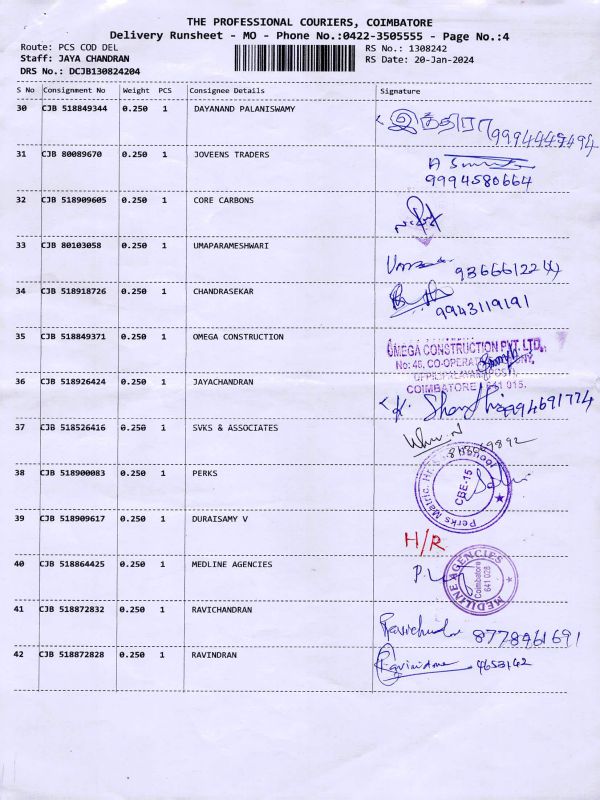 THE PROFESSIONAL COURIERS, COIMBATORE
Delivery Runsheet - MO - Phone No.:0422-3505555 - Page No.:4
Route: PCS COD DEL RS No.: 1308242
Staff: JAYA CHANDRAN RS Date: 20-Jan-2024
DRS No.: DCJB130824204
S No Consignment No Weight PCS Consignee Details Signature
30 CJB 518849344 0.250 1 DAYANAND PALANISWAMY
இந்திரா
31 CJB 80089670 0.250 1 JOVEENS TRADERS
9994580664
32 CJB 518909605 0.250 1 CORE CARBONS
33 CJB 80103058 0.250 1 UMAPARAMESHWARI
9366661224
34 CJB 518918726 0.250 1 CHANDRASEKAR
9943119191
35 CJB 518849371 0.250 1 OMEGA CONSTRUCTION
OMEGA CONSTRUCTION PVT. LTD.,
No: 46, CO-OPERAT
COIMBATORE 641 015.
36 CJB 518926424 0.250 1 JAYACHANDRAN
K. Shanthi 9994691774
37 CJB 518526416 0.250 1 SVKS & ASSOCIATES
38 CJB 518900083 0.250 1 PERKS
Perks Matric. Hr. Sec. School
CBE-15
39 CJB 518909617 0.250 1 DURAISAMY V
H/R
40 CJB 518864425 0.250 1 MEDLINE AGENCIES
MEDILINE AGENCIES
Coimbatore
641 028
41 CJB 518872832 0.250 1 RAVICHANDRAN
8778961691
42 CJB 518872828 0.250 1 RAVINDRAN
4653142